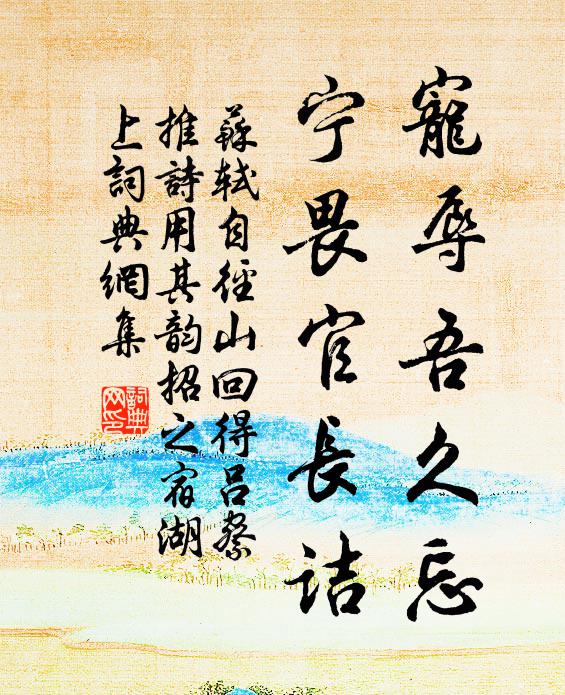 寵辱吾久忘
宁畏官長詰
蘇軾自徑山回得呂察
推詩用其韵招之宿湖
上詞典網集
詞典
网印